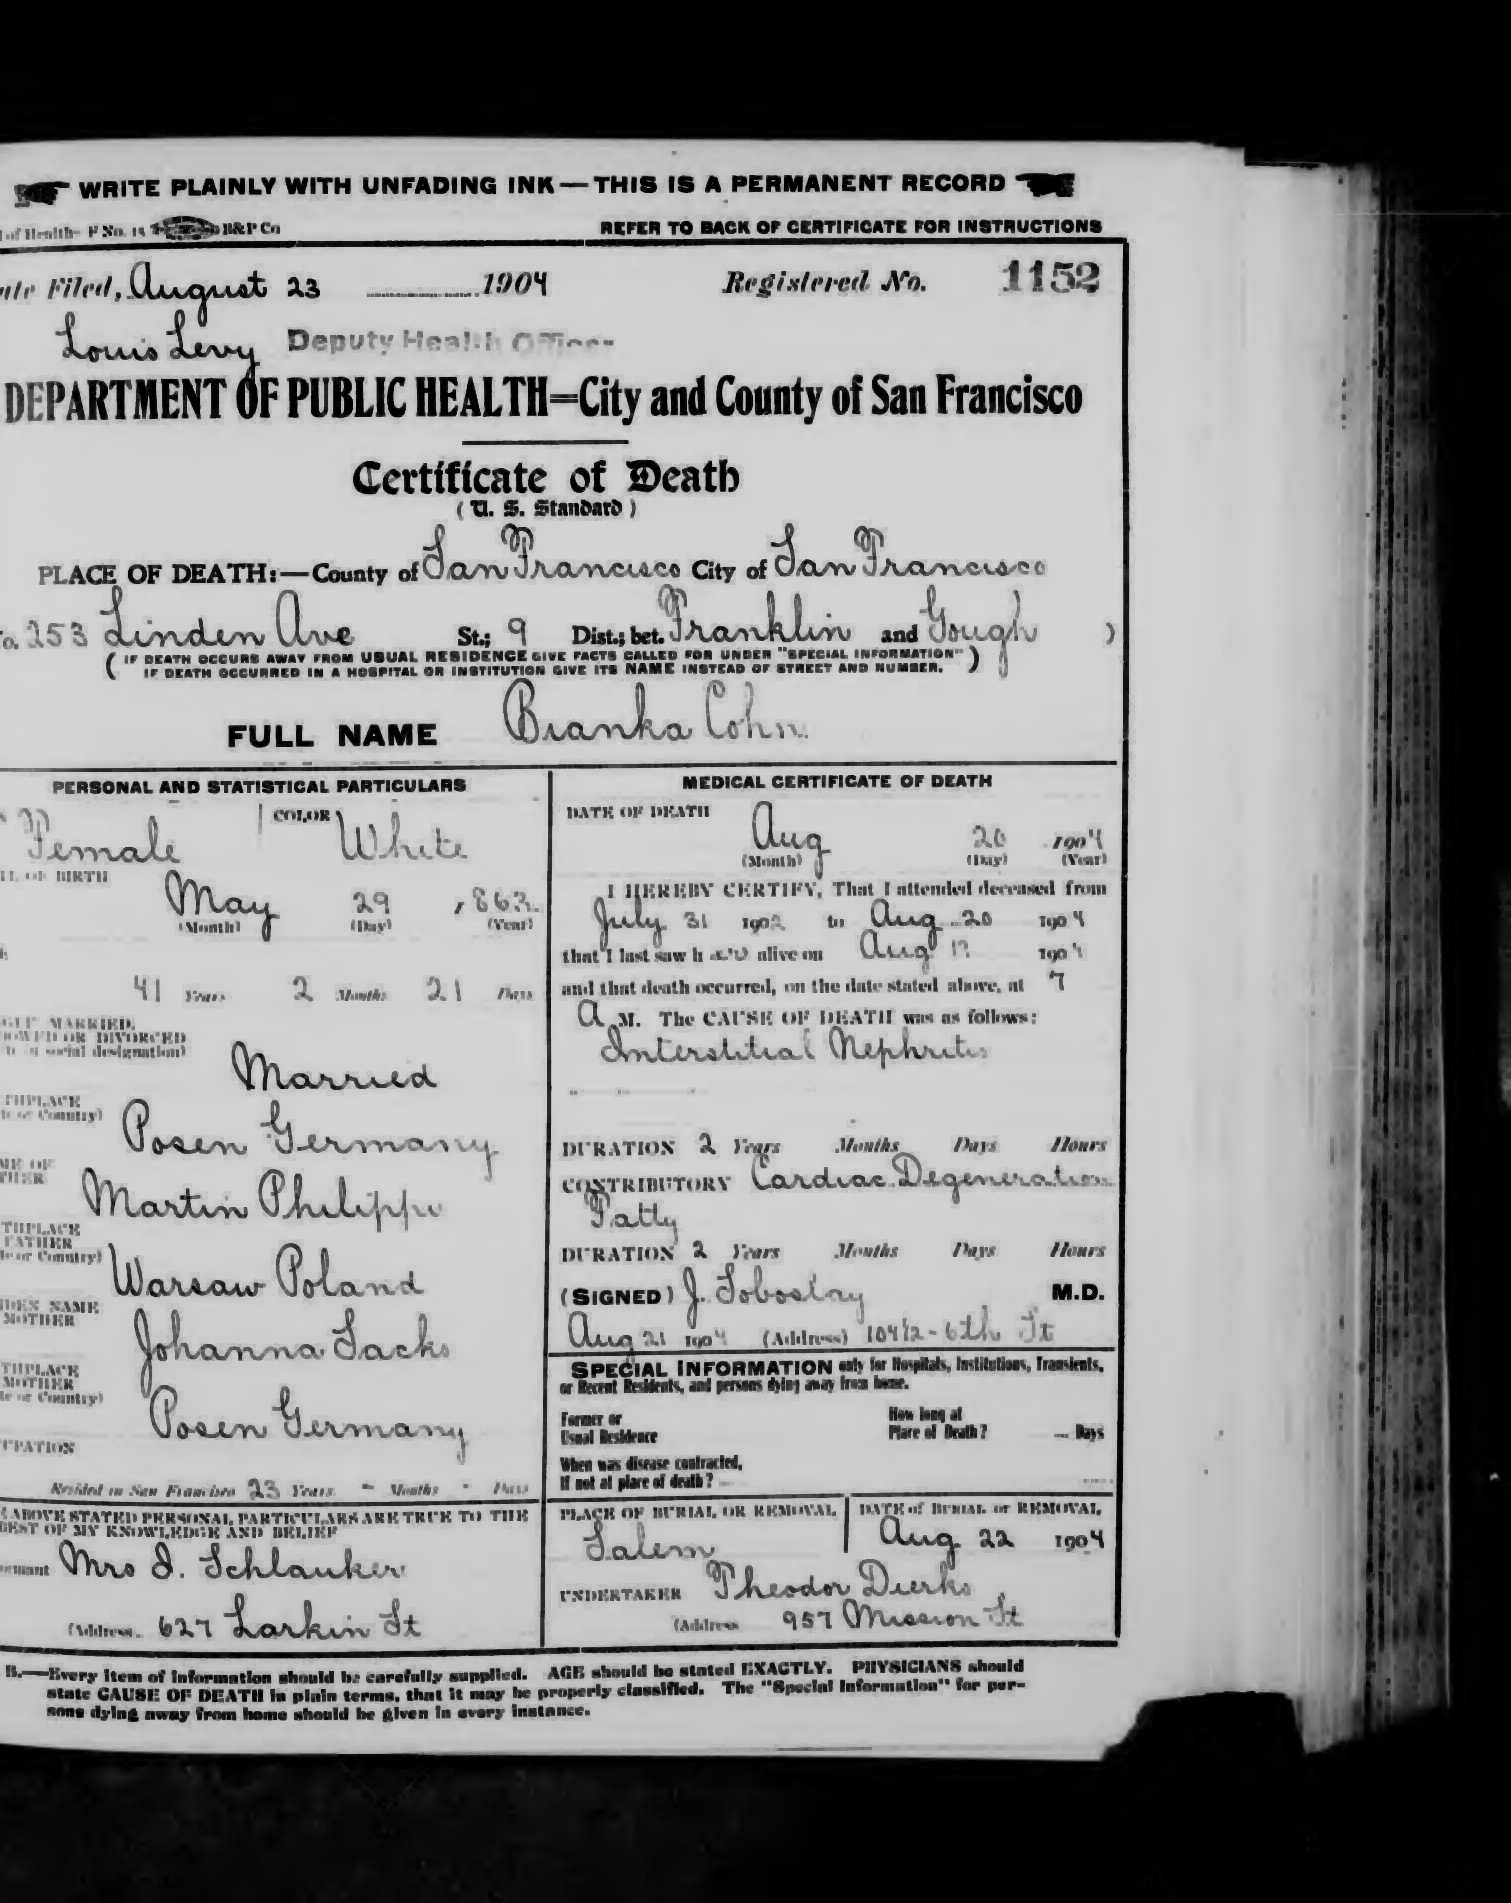 WRITE PLAINLY WITH UNFADING INK — THIS IS A PERMANENT RECORD
of Health- F No. 15 B&P Co REFER TO BACK OF CERTIFICATE FOR INSTRUCTIONS
ate Filed, August 23 1904 Registered No. 1152
Louis Levy Deputy Health Officer
DEPARTMENT OF PUBLIC HEALTH=City and County of San Francisco
Certificate of Death
( U. S. Standard )
PLACE OF DEATH:—County of San Francisco City of San Francisco
o. 253 Linden Ave St.; 9 Dist.; bet. Franklin and Gough )
( IF DEATH OCCURS AWAY FROM USUAL RESIDENCE GIVE FACTS CALLED FOR UNDER "SPECIAL INFORMATION" )
IF DEATH OCCURRED IN A HOSPITAL OR INSTITUTION GIVE ITS NAME INSTEAD OF STREET AND NUMBER.
FULL NAME Bianka Cohn
PERSONAL AND STATISTICAL PARTICULARS
Female COLOR White
OF BIRTH
May 29 , 863
(Month) (Day) (Year)
41 Years 2 Months 21 Days
GLE MARRIED,
OWED OR DIVORCED
social designation)
Married
THPLACE
or Country)
Posen Germany
ME OF
THER
Martin Philippi
THPLACE
FATHER
or Country)
Warsaw Poland
DEN NAME
MOTHER
Johanna Sacks
THPLACE
MOTHER
or Country)
Posen Germany
UPATION
Resided in San Francisco 23 Years - Months - Days
ABOVE STATED PERSONAL PARTICULARS ARE TRUE TO THE
BEST OF MY KNOWLEDGE AND BELIEF
ormant Mrs I. Schlanker
(Address 627 Larkin St
MEDICAL CERTIFICATE OF DEATH
DATE OF DEATH
Aug 20 1904
(Month) (Day) (Year)
I HEREBY CERTIFY, That I attended deceased from
July 31 1902 to Aug 20 1904
that I last saw h er alive on Aug 1904
and that death occurred, on the date stated above, at 7
A M. The CAUSE OF DEATH was as follows:
Interstitial Nephritis
DURATION 2 Years Months Days Hours
CONTRIBUTORY Cardiac Degeneration
Fatty
DURATION 2 Years Months Days Hours
(SIGNED) J. M.D.
Aug 21 1904 (Address) 104½ - 6th St
SPECIAL INFORMATION only for Hospitals, Institutions, Transients,
or Recent Residents, and persons dying away from home.
Former or How long at
Usual Residence Place of Death? — Days
When was disease contracted,
If not at place of death? —
PLACE OF BURIAL OR REMOVAL DATE of BURIAL or REMOVAL
Salem Aug 22 1904
UNDERTAKER Theodor Dierks
(Address 957 Mission St
B.—Every item of information should be carefully supplied. AGE should be stated EXACTLY. PHYSICIANS should
state CAUSE OF DEATH in plain terms, that it may be properly classified. The "Special Information" for per-
sons dying away from home should be given in every instance.